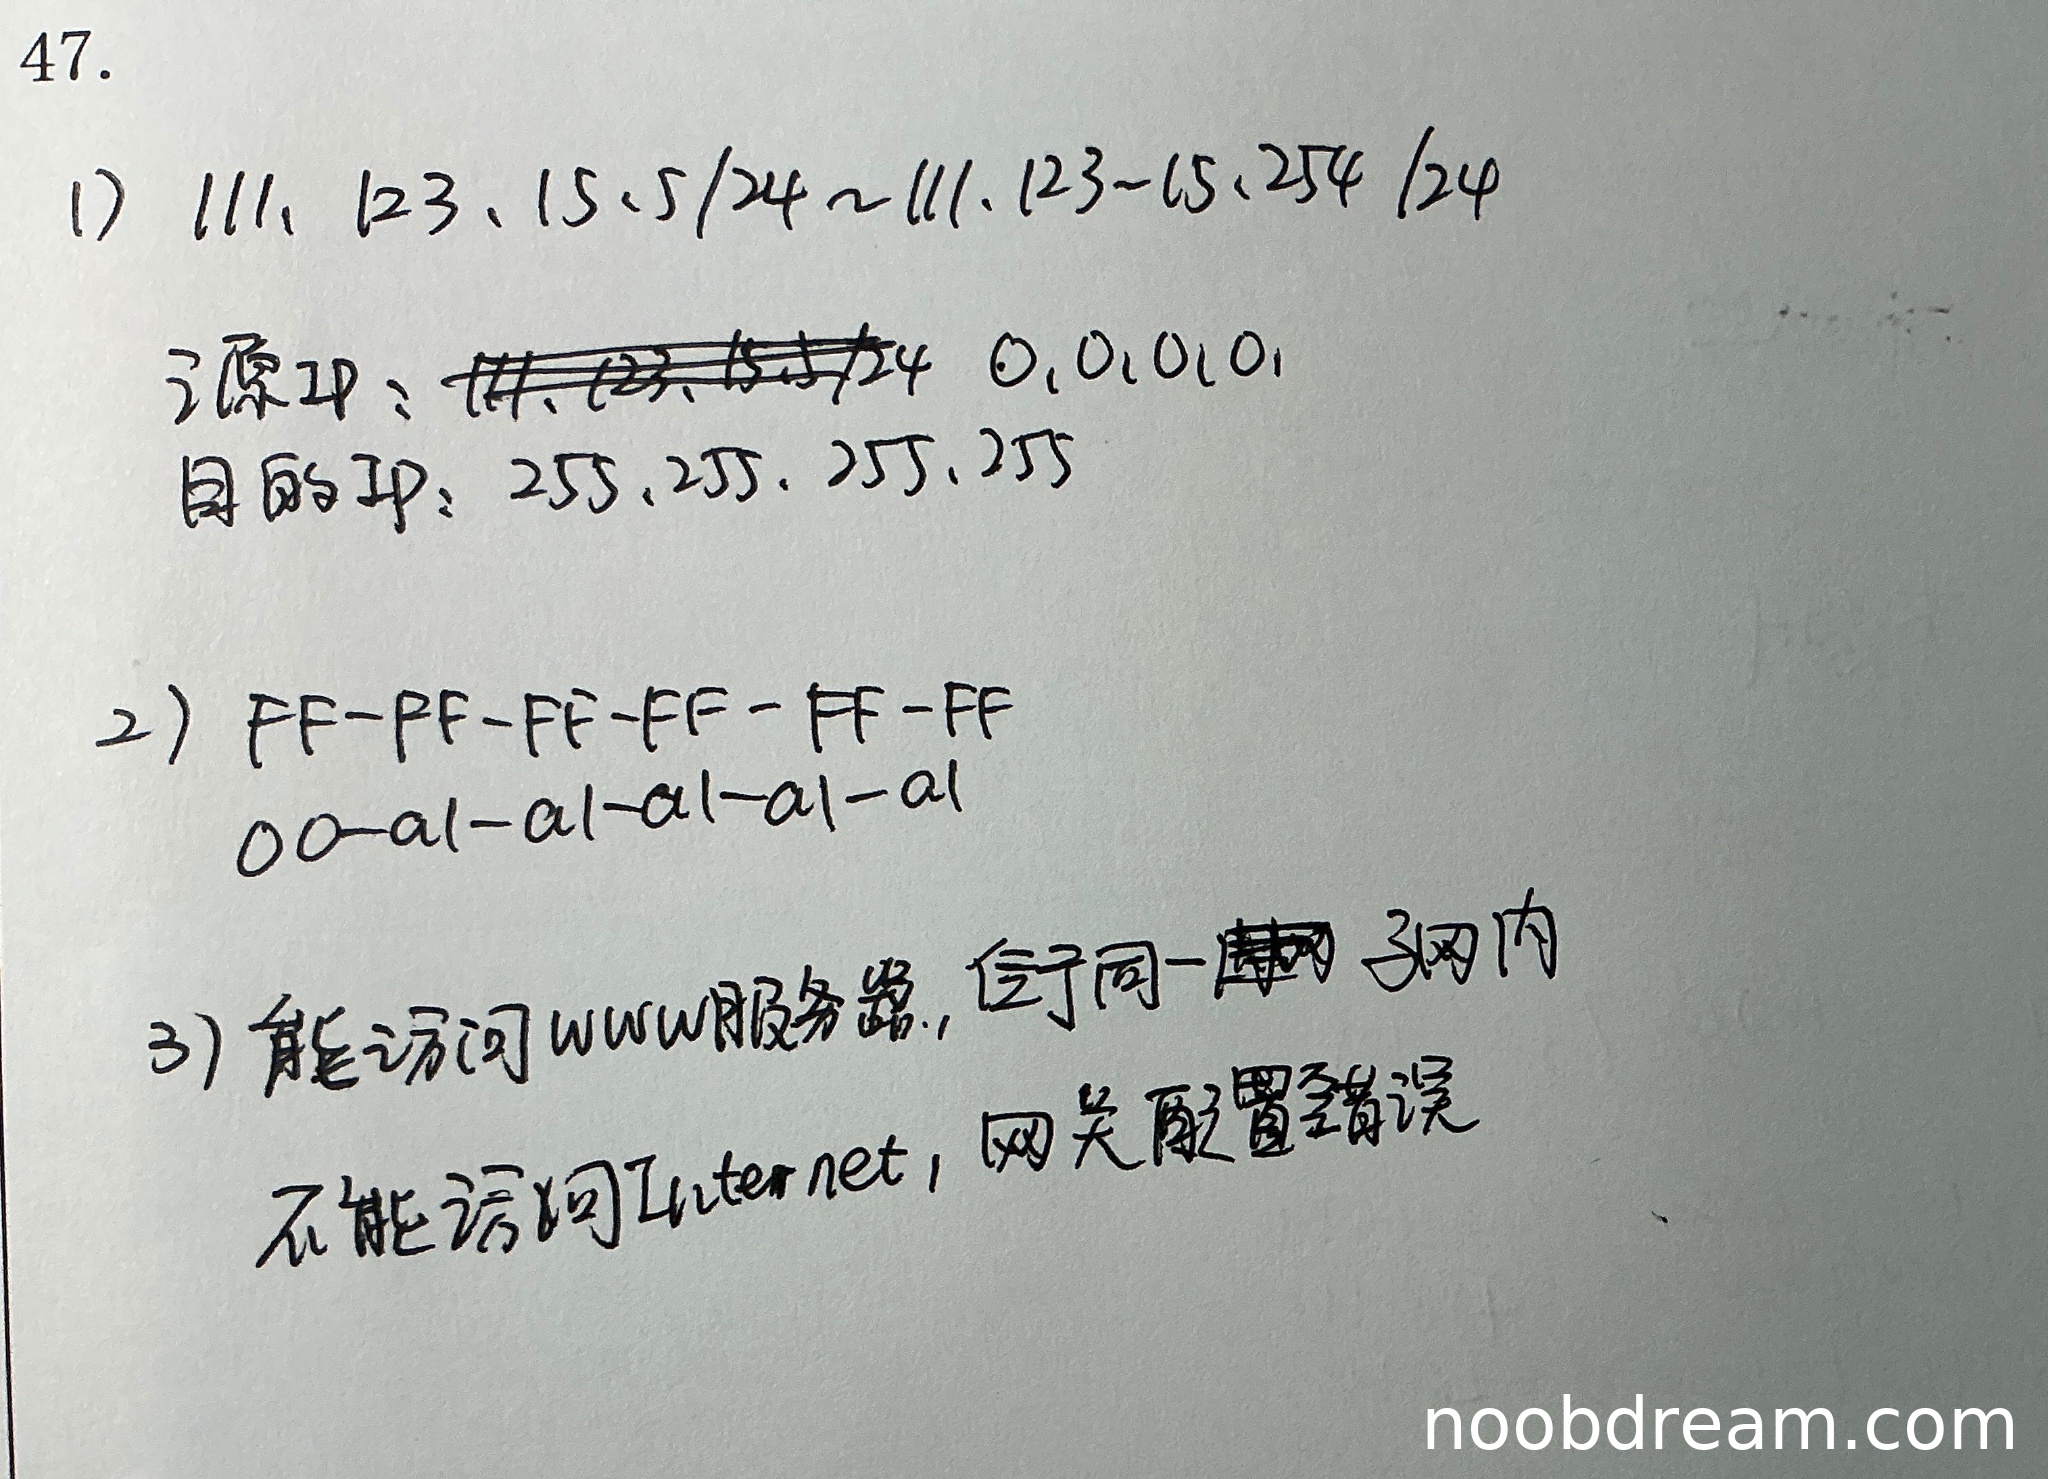 47.
1) 111.123.15.5/24~111.123.15.254/24
源IP: 0.0.0.0.
目的IP: 255.255.255.255
2) FF-FF-FF-FF-FF-FF
00-a1-a1-a1-a1-a1
3) 能访问WWW服务器,位于同一子网内
不能访问Internet,网关配置错误
noobdream.com